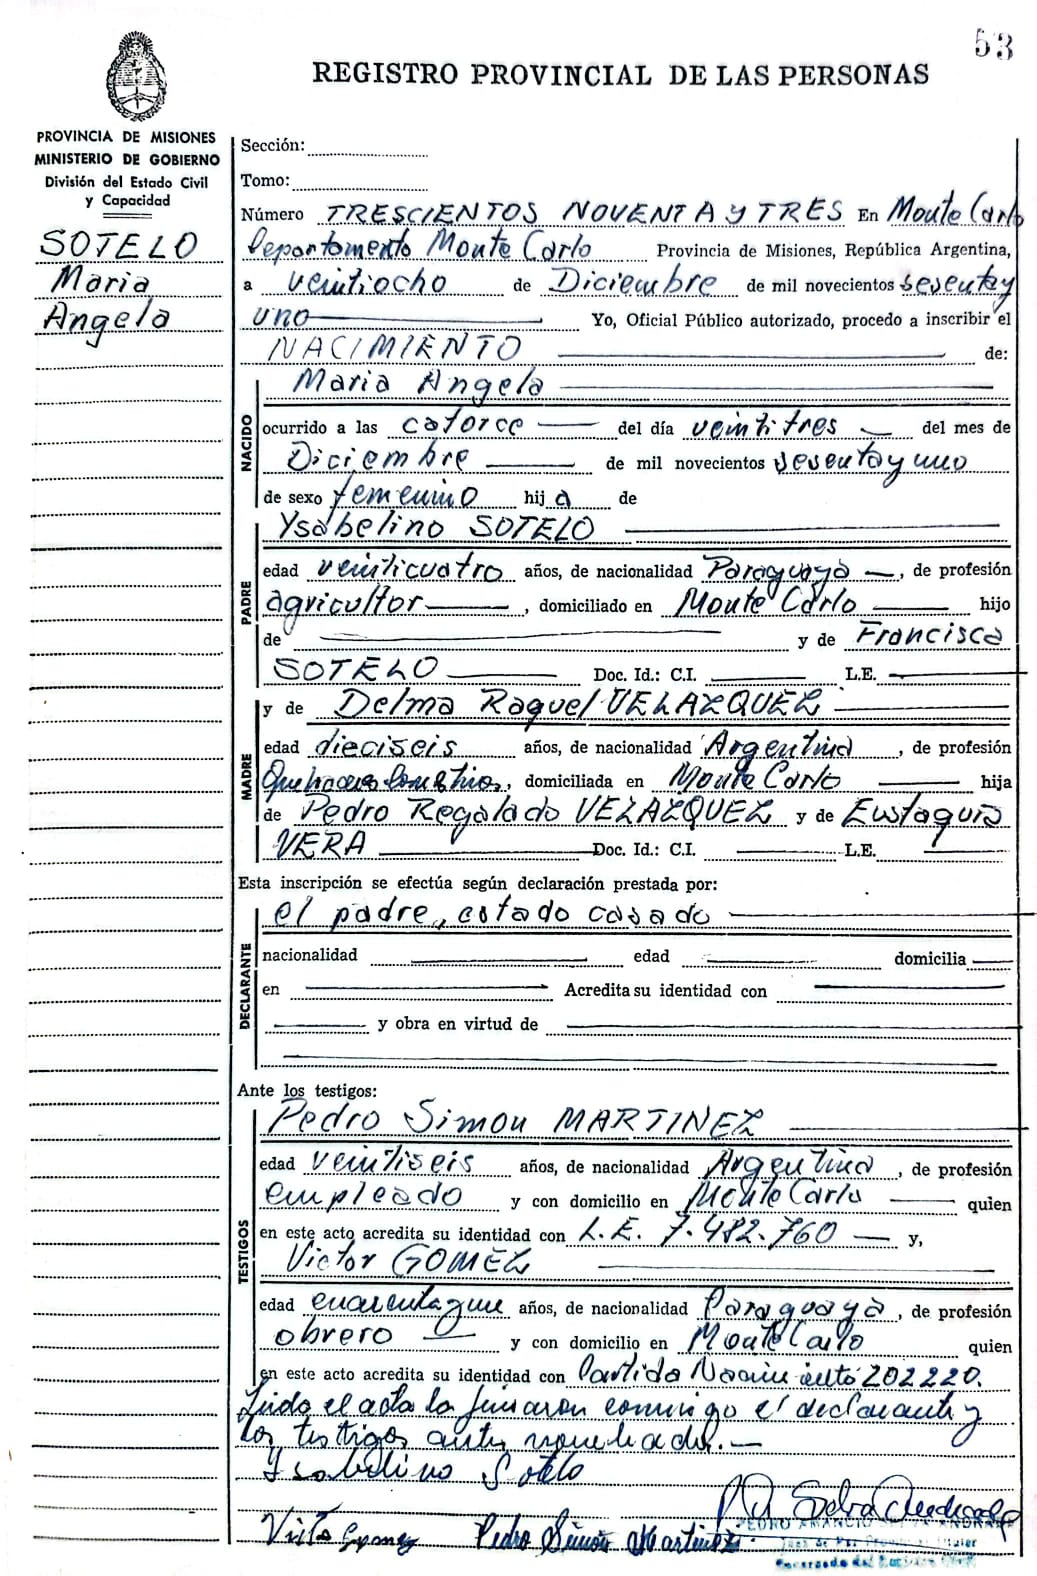 53
REGISTRO PROVINCIAL DE LAS PERSONAS
PROVINCIA DE MISIONES
MINISTERIO DE GOBIERNO
División del Estado Civil
y Capacidad
SOTELO
Maria
Angela
Sección:
Tomo:
Número TRESCIENTOS NOVENTA y TRES En Monte Carlo
Departamento Monte Carlo Provincia de Misiones, República Argentina,
a veintiocho de Diciembre de mil novecientos sesenta y
uno Yo, Oficial Público autorizado, procedo a inscribir el
NACIMIENTO de:
NACIDO
Maria Angela
ocurrido a las catorce del día veintitres del mes de
Diciembre de mil novecientos sesenta y uno
de sexo femenino hija de
PADRE
Ysabelino SOTELO
edad veinticuatro años, de nacionalidad Paraguaya, de profesión
agricultor, domiciliado en Monte Carlo hijo
de y de Francisca
SOTELO Doc. Id.: C.I. L.E.
MADRE
y de Delma Raquel VELAZQUEZ
edad dieciseis años, de nacionalidad Argentina, de profesión
Quehaceres domesticos, domiciliada en Monte Carlo hija
de Pedro Regalado VELAZQUEZ y de Eustaquia
VERA Doc. Id.: C.I. L.E.
Esta inscripción se efectúa según declaración prestada por:
DECLARANTE
el padre, estado casado
nacionalidad edad domicilia
en Acredita su identidad con
y obra en virtud de
Ante los testigos:
TESTIGOS
Pedro Simon MARTINEZ
edad veintiseis años, de nacionalidad Argentina, de profesión
empleado y con domicilio en Monte Carlo quien
en este acto acredita su identidad con L.E. 7.482.760 y,
Victor GOMEZ
edad años, de nacionalidad Paraguaya, de profesión
obrero y con domicilio en Monte Carlo quien
en este acto acredita su identidad con Partida Nacimiento 202220.
Leida el acta la firmaron conmigo el declarante y
los testigos antes nombrados.
Ysabelino Sotelo
Victor Gomez Pedro Simón Martinez
PEDRO AMANCIO